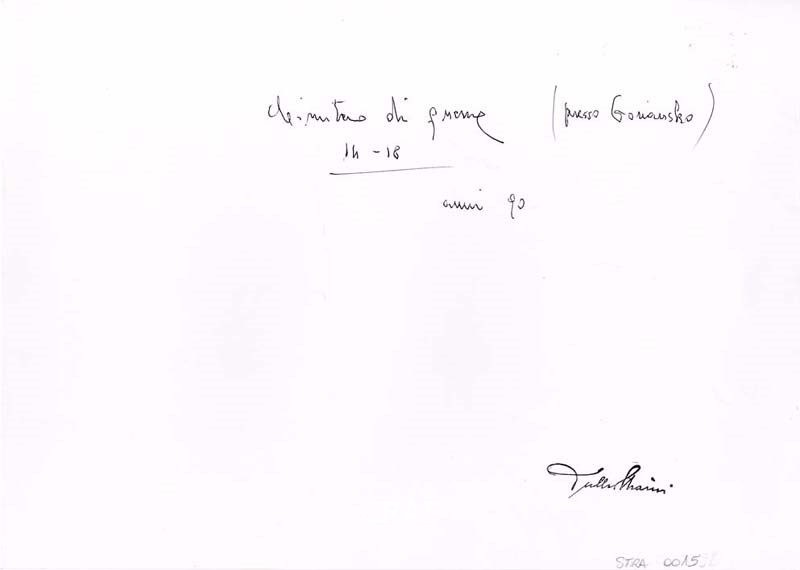 Cimitero di guerra (presso Gorjansko)
14-18
anni 90
Tullio Stravisi
STRA 0015